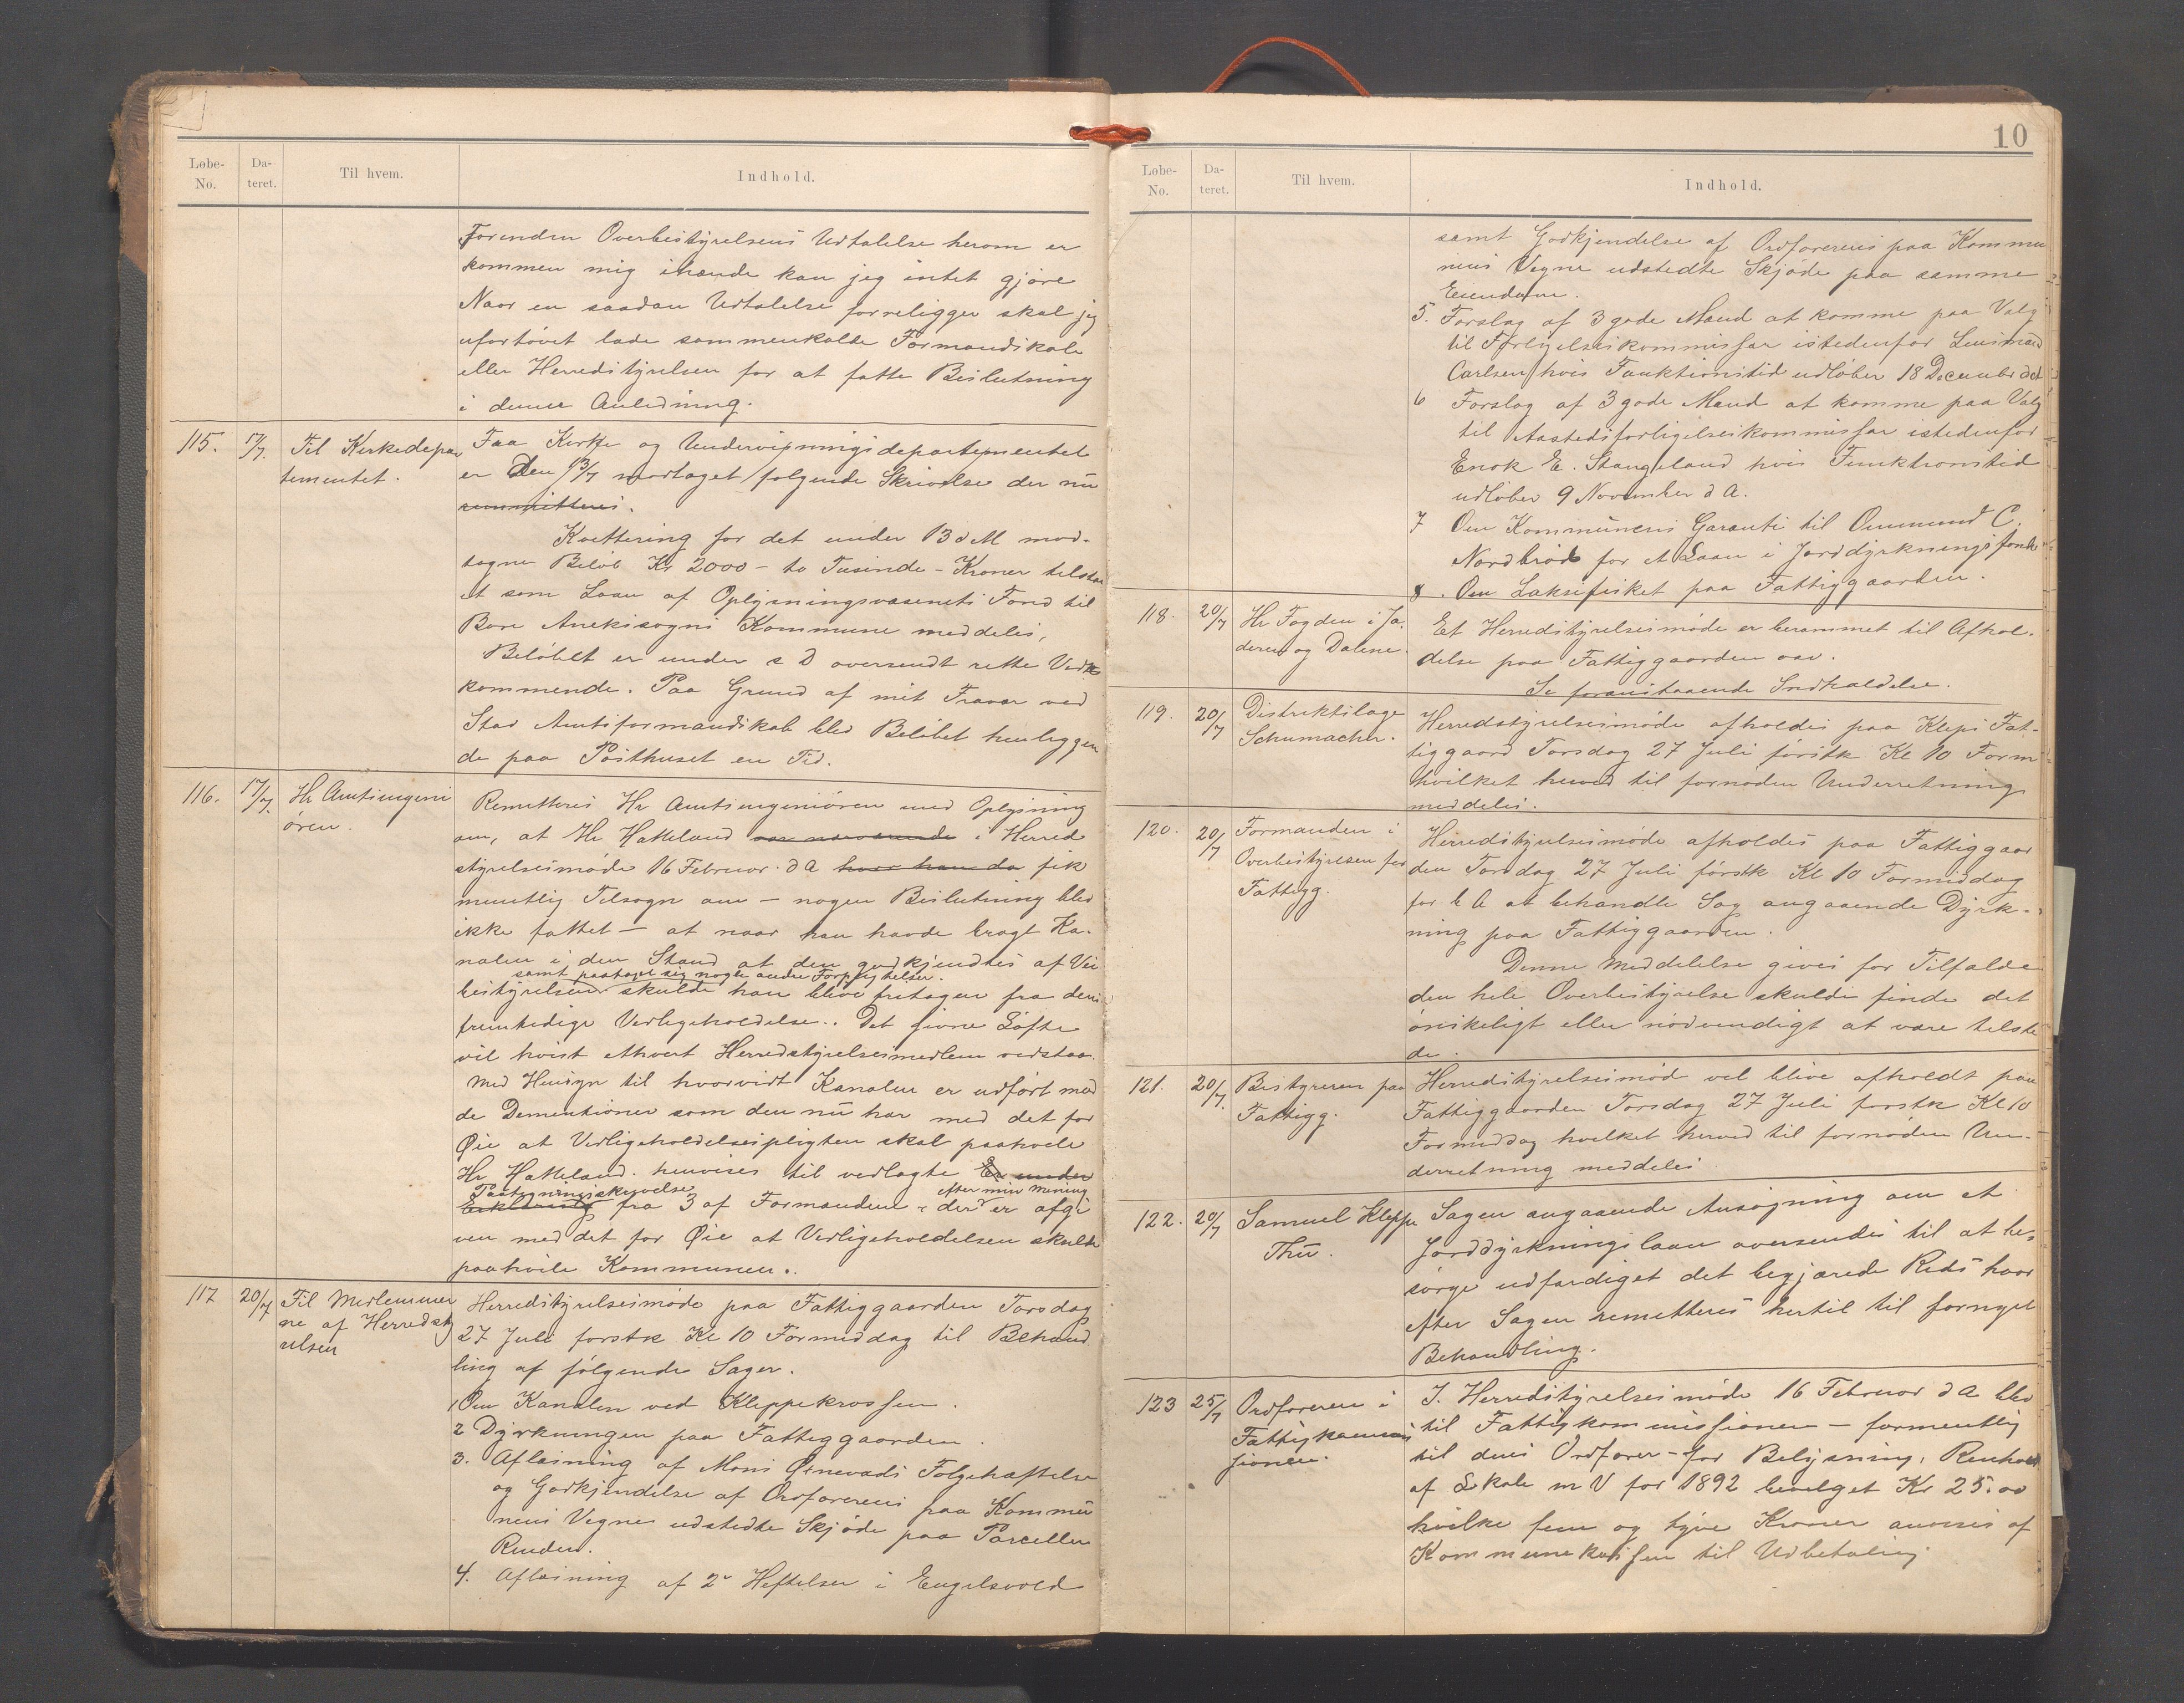 Løbe-No.
Da-teret.
Til hvem.
Indhold.
Forinden Overbestyrelsens Udtalelse herom er
kommen mig ihænde kan jeg intet gjøre
Naar en saadan Udtalelse foreligger skal jeg
ufortøvet lade sammenkalde Formandskab
eller Herredstyrelsen for at fatte Beslutning
i denne Anledning.
115. 17/7. Til Kirkedepar
tementet.
Fra Kirke og Undervisningsdepartementet
er Den 13/7 modtaget følgende Skrivelse der nu
remitteres.
Kvittering for det under 13 d M mod-
tagne Beløb Kr 2000 - to Tusinde - Kroner tilstaa
et som Laan af Oplysningsvæsenets Fond til
Bore Anekssogns Kommune meddeles,
Beløbet er under s D oversendt rette Ved
kommende. Paa Grund af mit Fravær ved
Stav Amtsformandskab blev Beløbet henliggen
de paa Posthuset en Tid.
116. 17/7. Hr Amtsingeni
øren.
Remitteres Hr Amtsingeniøren med Oplysning
om, at Hr Hatteland var nærværende i Herred
styrelsesmøde 16 Februar d A hvor han da fik
mundtlig Tilsagn om - nogen Beslutning blev
ikke fattet - at naar han havde bragt Ka-
nalen i den Stand at den godkjendtes af Vei
samt paataget sig nogle andre Forpligtelser.
bestyrelsen skulde han blive fritagen fra dens
fremtidige Vedligeholdelse. Det givne Løfte
vil hvist ethvert Herredstyrelsesmedlem vedstaa.
Med Hensyn til hvorvidt Kanalen er udført med
de Dimentioner som den nu har med det for
Øie at Vedligeholdelsespligten skal paahvile
Hr Hatteland henvises til vedlagte En under
Paategningsskrivelse efter min Mening
Erklæring fra 3 af Formændene der er afgi
ven med det for Øie at Vedligeholdelsen skulde
paahvile Kommunen.
117 20/7 Til Medlemmer
ne af Herredsty
relsen
Herredstyrelsesmøde paa Fattiggaarden Torsdag
27 Juli førstk Kl 10 Formiddag til Behand
ling af følgende Sager.
1 Om Kanalen ved Kleppekrossen.
2 Dyrkningen paa Fattiggaarden.
3. Aflæsning af Mons Ørnevads Følgehæftelse
og Godkjendelse af Ordførerens paa Kommu
nens Vegne udstedte Skjøde paa Parcellen
Renden.
4. Aflæsning af 2de Heftelser i Engelsvold
10
Løbe-No.
Da-teret.
Til hvem.
Indhold.
samt Godkjendelse af Ordførerens paa Kommu
nens Vegne udstedte Skjøde paa samme
Eiendom.
5. Forslag af 3 gode Mænd at komme paa Valg
til Forligelseskommissær istedenfor Lensmand
Carlsen hvis Funktionstid udløber 18 December d A
6 Forslag af 3 gode Mænd at komme paa Valg
til Aastedsforligelseskommissær istedenfor
Enok E. Stangeland hvis Funktionstid
udløber 9 November d A.
7 Om Kommunens Garanti til Ommund C.
Nordbrød for et Laan i Jorddyrkningsfondet
8. Om Laksefisket paa Fattiggaarden.
118. 20/7 Hr Fogden i Jæ-
deren og Dalene.
Et Herredstyrelsesmøde er berammet til Afhol-
delse paa Fattiggaarden osv.
Se foranstaaende Indkaldelse.
119. 20/7 Distriktslæge
Schumacher.
Herredstyrelsesmøde afholdes paa Kleps Fat-
tiggaard Torsdag 27 Juli førstk Kl 10 Form
hvilket herved til fornøden Underretning
meddeles.
120. 20/7 Formanden i
Overbestyrelsen for
Fattigg.
Herredstyrelsesmøde afholdes paa Fattiggaar
den Torsdag 27 Juli førstk Kl 10 Formiddag
for b A at behandle Sag angaaende Dyrk-
ning paa Fattiggaarden.
Denne Meddelelse gives for Tilfælde
den hele Overbestyrelse skulde finde det
ønskeligt eller nødvendigt at være tilste
de.
121. 20/7. Bestyreren paa
Fattigg.
Herredstyrelsesmød vil blive afholdt paa
Fattiggaarden Torsdag 27 Juli førstk Kl 10
Formiddag hvilket herved til fornøden Un-
derretning meddeles
122. 20/7 Samuel Kleppe
Thu.
Sagen angaaende Ansøgning om et
Jorddyrkningslaan oversendes til at be-
sørge udfærdiget det begjærede Rids hvor
efter Sagen remitteres hertil til fornyet
Behandling.
123 25/7 Ordføreren i
Fattigkommis
sionen.
I. Herredstyrelsesmøde 16 Februar d A blev
til Fattigkommissionen - formentlig
til dens Ordfører - for Belysning, Renhold
af Lokale m V for 1892 bevilget Kr 25.00
hvilke fem og tyve Kroner anvises af
Kommunekassen til Udbetaling